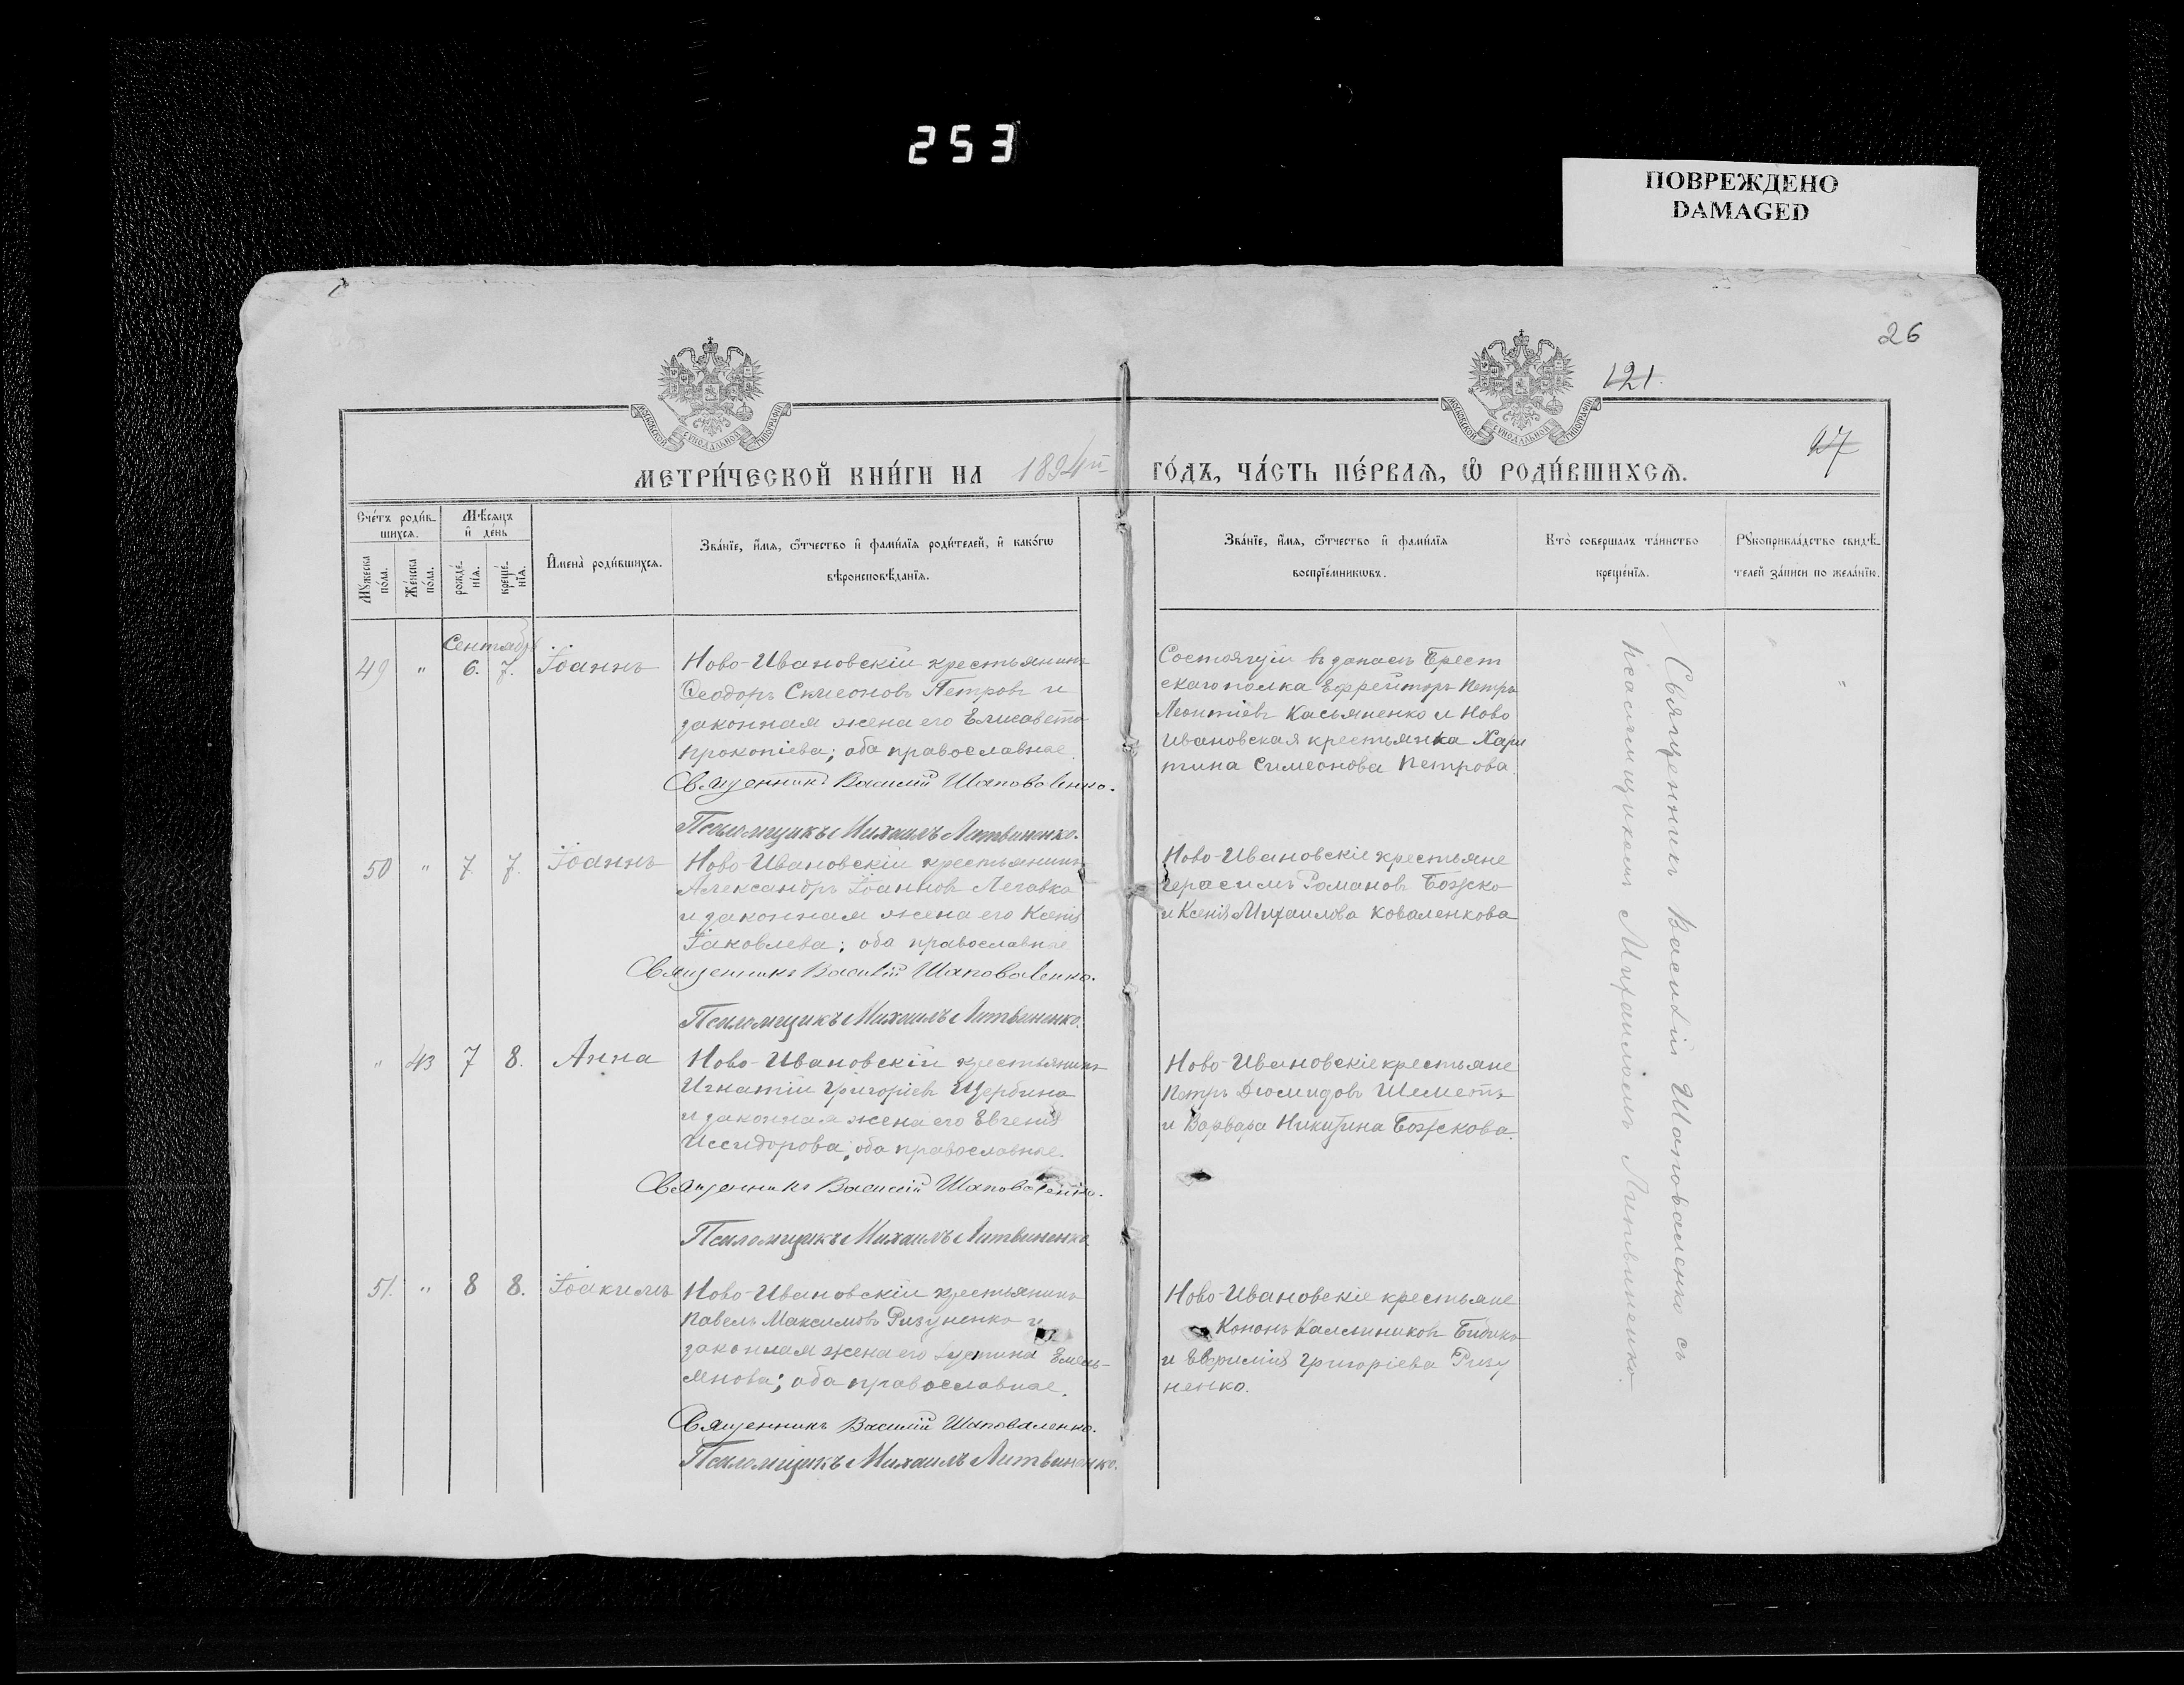 253
ПОВРЕЖДЕНО
DAMAGED
26
121.
27
МОСКОВСКОЙ СѴНОДАЛЬНОЙ ТИПОГРАФІИ
МОСКОВСКОЙ СѴНОДАЛЬНОЙ ТИПОГРАФІИ
МЕТРИ́ЧЕСКОЙ КНИ́ГИ НА 1894й ГО́ДЪ, ЧА́СТЬ ПЕ́РВАѦ, Ѡ РОДИ́ВШИХСѦ.
Сче́тъ роди́вшихсѧ.
Мѣ́сѧцъ и҆ де́нь
Мꙋ́жеска по́ла.
Же́нска по́ла.
рожде́нїѧ.
креще́нїѧ.
И҆мена̀ роди́вшихсѧ.
Зва́нїе, и҆́мѧ, ѻ҆́тчество и҆ фами́лїѧ роди́телей, и҆ како́гѡ
вѣроисповѣ́данїѧ.
Зва́нїе, и҆́мѧ, ѻ҆́тчество и҆ фами́лїѧ
воспрїе́мникѡвъ.
Кто̀ соверша́лъ та́инство
креще́нїѧ.
Рꙋкоприкла́дство свидѣ́телей за́писи по жела́нїю.
Сентябрь
49 " 6. 7. Іоаннъ
Ново-Ивановскій крестьянинъ
Ѳеодоръ Симеоновъ Петровъ и
законная жена его Елисавета
Прокопіева; оба православные.
Священникъ Василій Шаповаленко.
Псаломщикъ Михаилъ Литвиненко.
Состоящій въ запасѣ Брест
скаго полка Ефрейторъ Петръ
Леонтіевъ Касьяненко и Ново
Ивановская крестьянка Хари
тина Симеонова Петрова.
50 " 7 7. Іоаннъ
Ново-Ивановскій крестьянинъ
Александръ Іоанновъ Легавко
и законная жена его Ксенія
Іаковлева; оба православные
Священникъ Василій Шаповаленко.
Псаломщикъ Михаилъ Литвиненко.
Ново-Ивановскіе крестьяне
Герасимъ Романовъ Божко
и Ксенія Михаилова Коваленкова
" 43 7 8. Анна
Ново-Ивановскій крестьянинъ
Игнатій Григоріевъ Щербина
и законная жена его Евгенія
Иссидорова; оба православные.
Священникъ Василій Шаповаленко.
Псаломщикъ Михаилъ Литвиненко
Ново-Ивановскіе крестьяне
Петръ Діомидовъ Шеметъ
и Варвара Никитина Божкова.
51. " 8 8. Іоакимъ
Ново-Ивановскій крестьянинъ
Павелъ Максимовъ Ризуненко и
законная жена его Іустина Емель-
янова; оба православные.
Священникъ Василій Шаповаленко.
Псаломщикъ Михаилъ Литвиненко.
Ново-Ивановскіе крестьяне
Кононъ Каллиниковъ
и Евфимія Григоріева Ризу
ненко.
Священникъ Василій Шаповаленко съ
псаломщикомъ Михаиломъ Литвиненко.